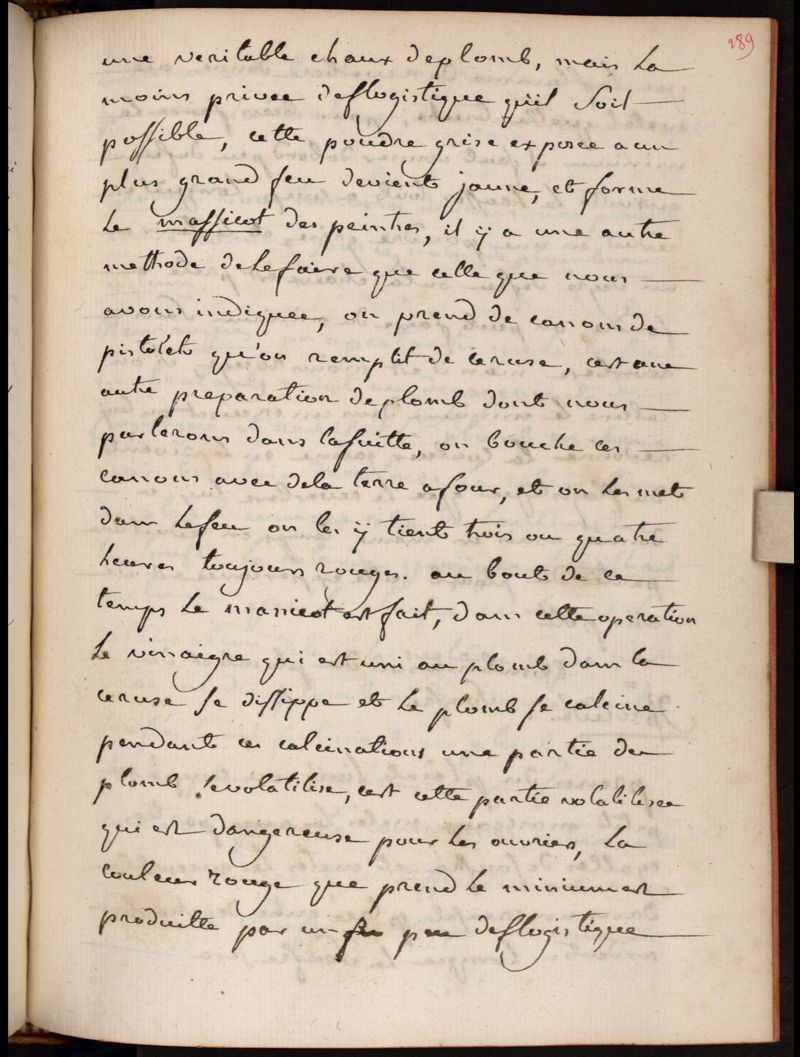 289
une veritable chaux deplomb, mais la
moins privee deflogistique qu'il soit
possible, cette poudre grise exposee a un
plus grand feu devient jaune, et forme
le massicot des peintres, il ÿ a une autre
methode delefaire que celle que nous
avons indiquee, on prend de canons de
pistolets qu'on remplit de ceruse, c'est une
autre preparation deplomb dont nous
parlerons dans lasuitte, on bouche ces
canons avec dela terre afour, et on les met
dans lefeu on les ÿ tient trois ou quatre
heures toujours rouges. au bout de ce
temps le massicot est fait, dans cette operation
le vinaigre qui est uni au plomb dans la
ceruse se dissippe et le plomb se calcine
pendant ces calcinations une partie de
plomb sevolatilise, c'est cette partie volatilisee
qui est dangereuse pour les ouvriers, la
couleur rouge que prend le minium est
produitte par un deflogistique